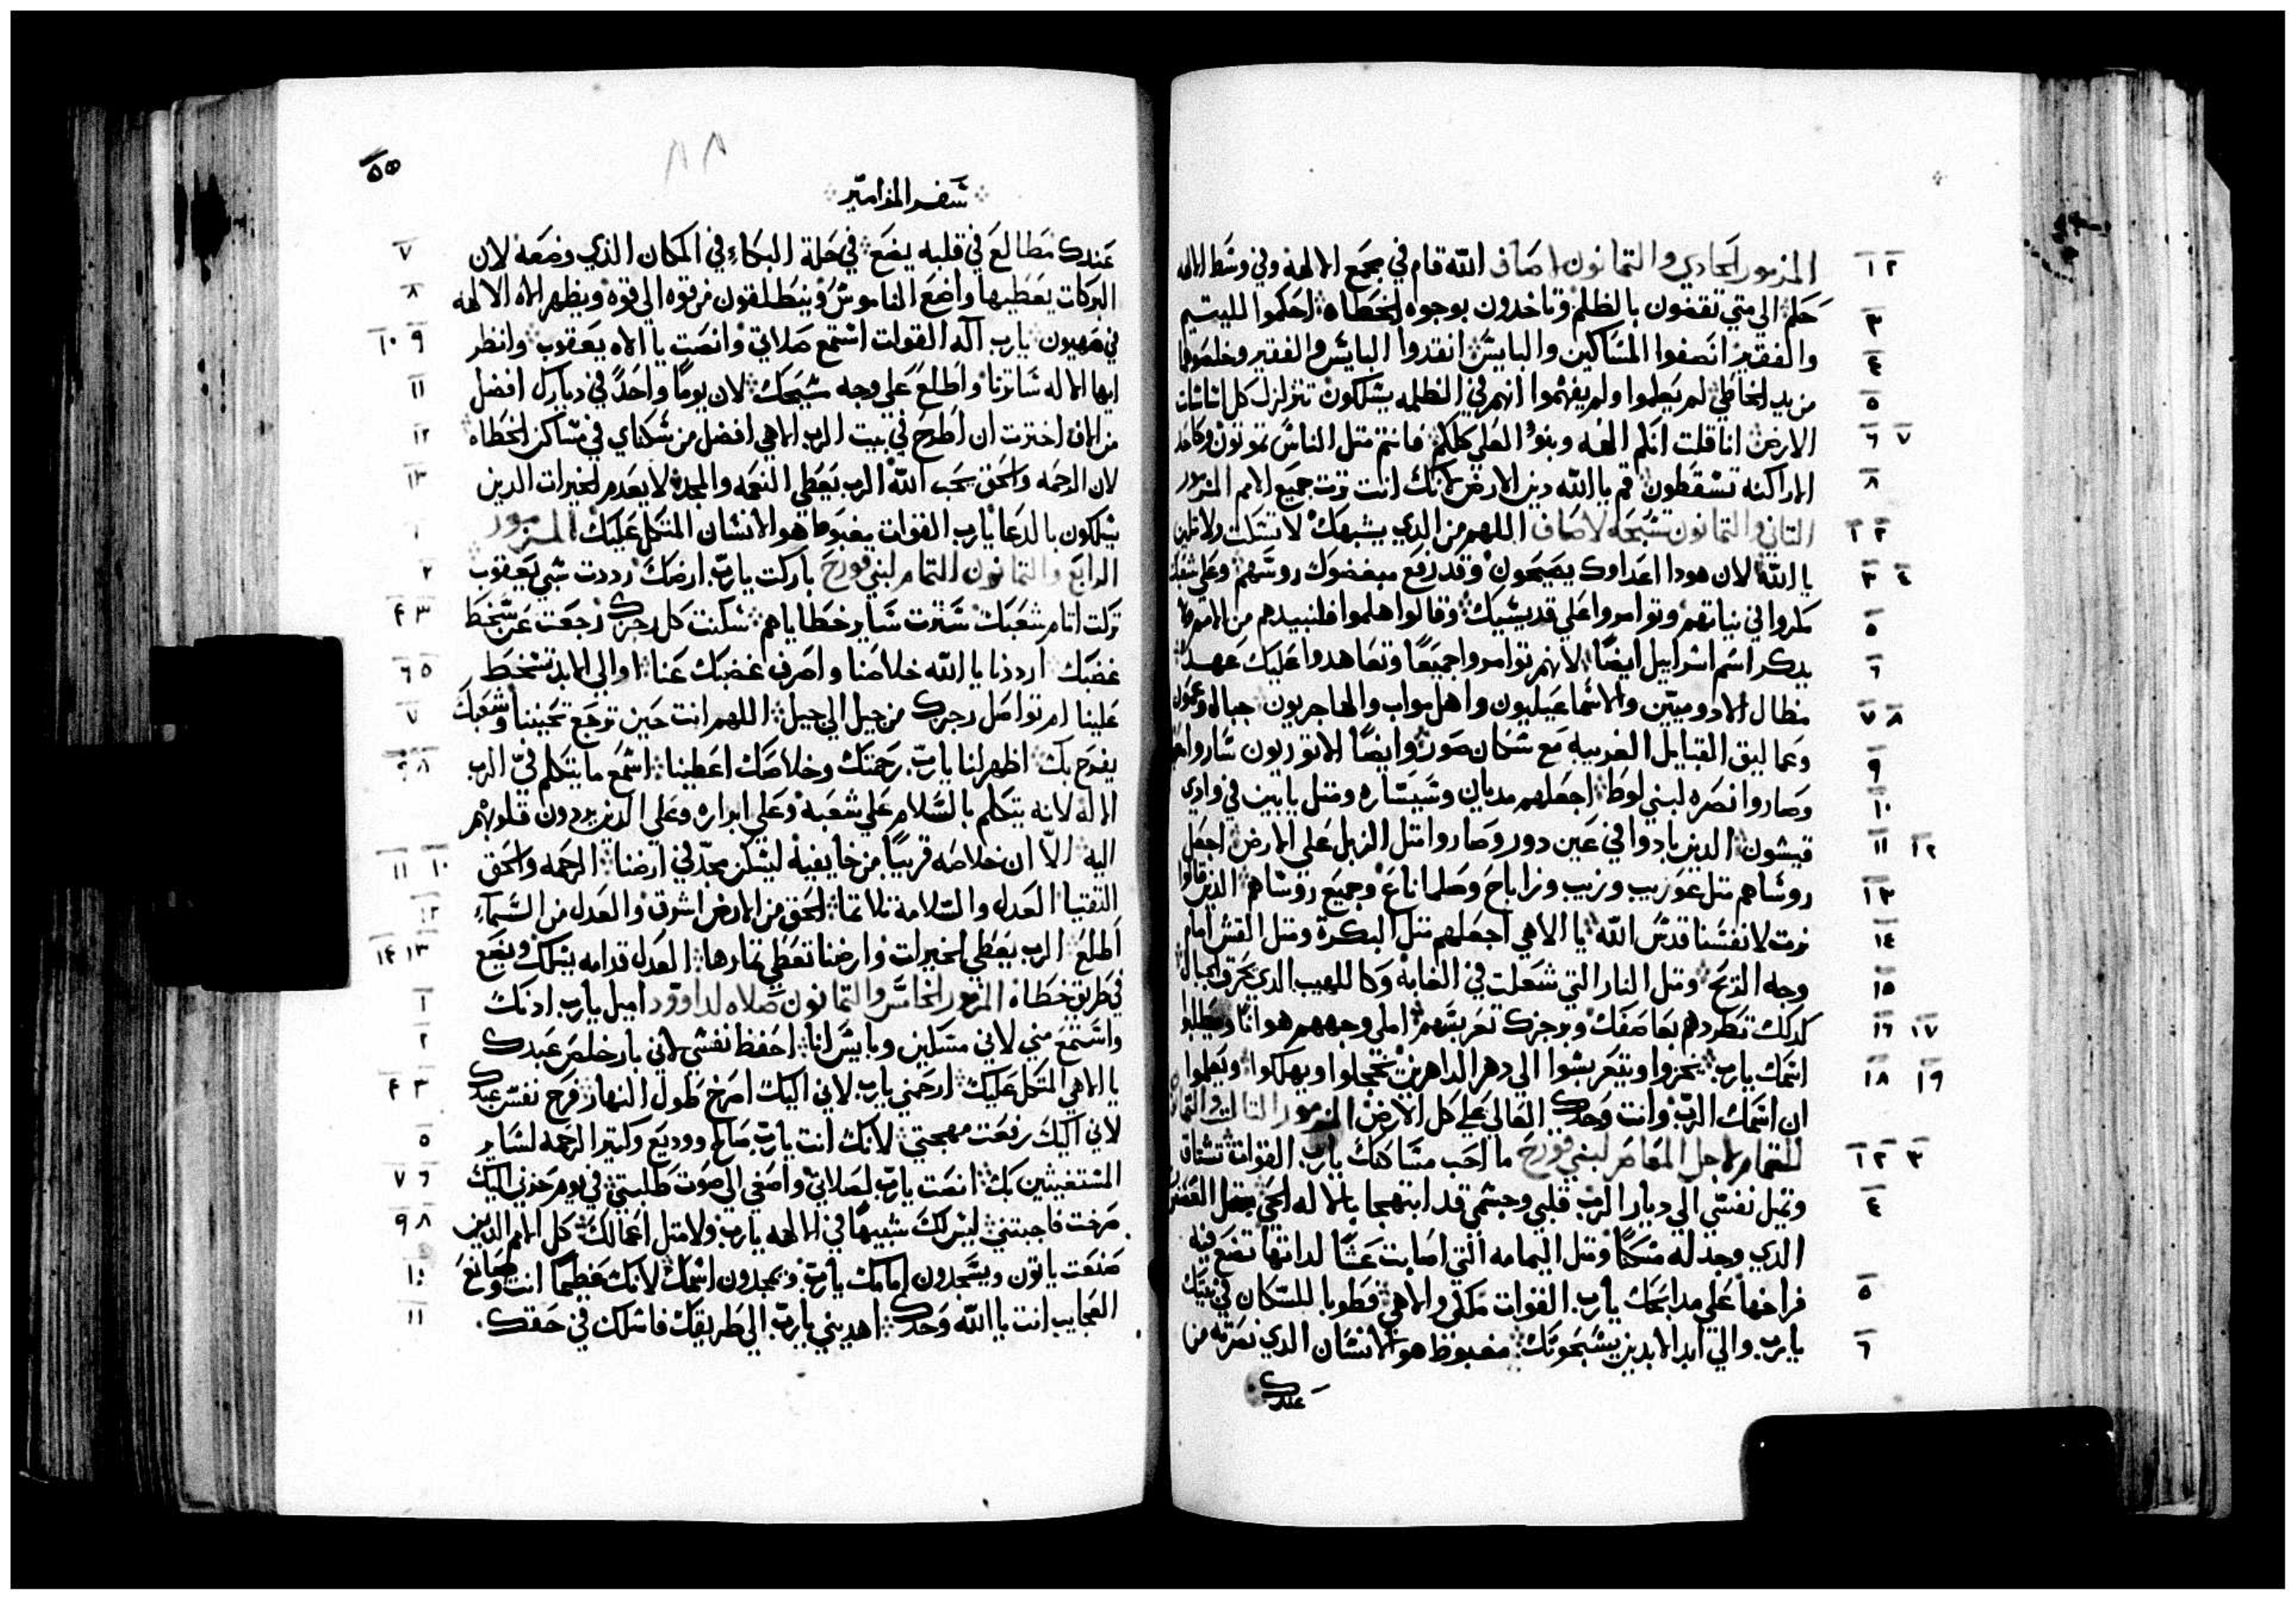 المزمور الحادي والتمانون لاصاف الله قام في مجمع الالهة وفي وسط الالهه
١ ٢
حكم الى متي تقضون بالظلم وتاخدون بوجوه الخطاه احكموا لليتيم
٣
والفقير انصفوا المساكين والبايس انقدوا البايس والفقير وخلصوهما
٤
من يد الخاطي لم يعلموا ولم يفهموا انهم في الظلمه يسلكون تتزلزل كل اساسات
٥
الارض انا قلت انكم الهه وبنو العلي كلكم فانتم متل الناس تموتون وكاحد
٦ ٧
الاراكنه تسقطون قم يا الله دين الارض لانك انت ترت جميع الامم المزمور
٨
التاني والتمانون تسبحة لاصاف اللهم من الدي يشبهك لا تسكت ولا تلين
١ ٢
يا الله لان هودا اعداوك يصيحون وقد رفع مبغضوك روسهم وعلي شعبك
٣ ٤
مكروا في نياتهم وتوامروا علي قديسيك وقالوا هلموا فلنبيدهم من الامم ولا
٥
يدكر اسم اسراييل ايضا لانهم توامروا جميعا وتعاهدوا عليك عهدا
٦
مظال الادوميين والاسماعيليون واهل مواب والهاجريون جبال وعمون
٧ ٨
وعماليق القبايل الغريبة مع سكان صور وايضا الاتوريون ساروا معهم
٩
وصاروا نصره لبني لوط اجعلهم مديان وسيساره ومتل يابين في وادي
١٠
قيشون الدين بادوا في عين دور وصاروا متل الزبل علي الارض اجعل
١١ ١٢
روساهم متل عوريب وزيب وزاباح وصلماناع وجميع روساهم الدين قالوا
١٣
نرت لانفسنا قدس الله يا الاهي اجعلهم متل البكرة ومتل القش امام
١٤
وجه الريح ومتل النار التي شعلت في الغابه وكاللهيب الدي يحرق الجبال
١٥
كدلك تطردهم بعاصفك وبرجزك تعربسهم املي وجههم هوانا ويطلبوا
١٦ ١٧
اسمك يارب يخزوا ويتعربسوا الي دهر الداهرين يخجلوا ويهلكوا ويعلموا
١٨ ١٩
ان اسمك الرب وانت وحدك العالي علي كل الارض المزمور التالت والتمانون
للتمام لاجل المعاصر لبني قورح ما احب مساكنك يارب القوات تشتاق
١ ٢ ٣
وتميل نفسي الي ديار الرب قلبي وجسمي قد ابتهجا بالاله الحي متل العصفور
٤
الدي وجد له مسكنا ومتل اليمامه التي اصابت عشا لداتها تضع فيه
فراخها علي مدابحك يارب القوات ملكي والاهي فطوبا للسكان في بيتك
٥
يارب والي ابد الابدين يسبحونك مغبوط هو الانسان الدي نصرته من
٦
عندك
٨٨
٥٥
سفر المزامير
عندك مطالع في قلبه يضع في حلة البكاء في المكان الذي وضعه لان
٧
البركات يعطيها واضع الناموس وينطلقون من قوه الي قوه ويظهر الاه الالهه
٨
في صهيون يارب اله القوات استمع صلاتي وانصت يا الاه يعقوب وانظر
٩ ١٠
ايها الاله ساترنا واطلع علي وجه مسيحك لان يوما واحدا في ديارك افضل
١١
من الاف اخترت ان اطرح في بيت الرب الاهي افضل من سكناي في مساكن الخطاه
١٢
لان الرحمه والحق يحب الله الرب يعطي النعمه والمجد لا يعدم الخيرات الدين
١٣
يسلكون بالدعا يارب القوات مغبوط هو الانسان المتكل عليك المزمور
١
الرابع والتمانون للتمام لبني قورح باركت يارب ارضك رددت سبي يعقوب
٢
تركت اتام شعبك سترت ساير خطاياهم سكنت كل رجزك رجعت عن سخط
٣ ۴
غضبك ارددنا يا الله خلاصنا واصرف غضبك عنا اوالي الابد تسخط
٥ ٦
علينا ام تواصل رجزك من جيل الي جيل اللهم انت حين ترجع تحييننا وشعبك
٧
يفرح بك اظهر لنا يارب رحمتك وخلاصك اعطينا اسمع ما يتكلم في الرب
٨ ٩
الاله لانه يتكلم بالسلام علي شعبه وعلي ابراره وعلي الدين يردون قلوبهم
اليه الا ان خلاصه قريبا من خايفيه ليسكن مجد في ارضنا الرحمه والحق
١٠ ١١
التقتيا العدل والسلامة تلاتما الحق من الارض اشرق والعدل من السماء
١٢
اطلع الرب يعطي الخيرات وارضنا تعطي تمارها العدل قدامه يسلك ويضع
١٣ ١۴
في طريق خطاه المزمور الخامس والتمانون صلاه لداوود اميل يارب ادنك
١
واستمع مني لاني مسكين وبايس انا احفظ نفسي لاني بار خلص عبدك
٢
يا الاهي المتكل عليك ارحمني يارب لاني اليك اصرخ طول النهار فرح نفس عبدك
٣ ۴
لاني اليك رفعت مهجتي لانك انت يارب صالح ووديع وكتير الرحمه لساير
٥
المستغيثين بك انصت يارب لصلاتي واصغي الي صوت طلبتي في يوم حزني اليك
٦ ٧
صرخت فاجبتني ليس لك شبيها في الالهه يارب ولا متل اعمالك كل الامم الدين
٨ ٩
صنعت ياتون ويسجدون امامك يارب ويمجدون اسمك لانك عظيما انت وصانع
١٠
العجايب انت يا الله وحدك اهديني يارب الي طريقك فاسلك في حقك
١١